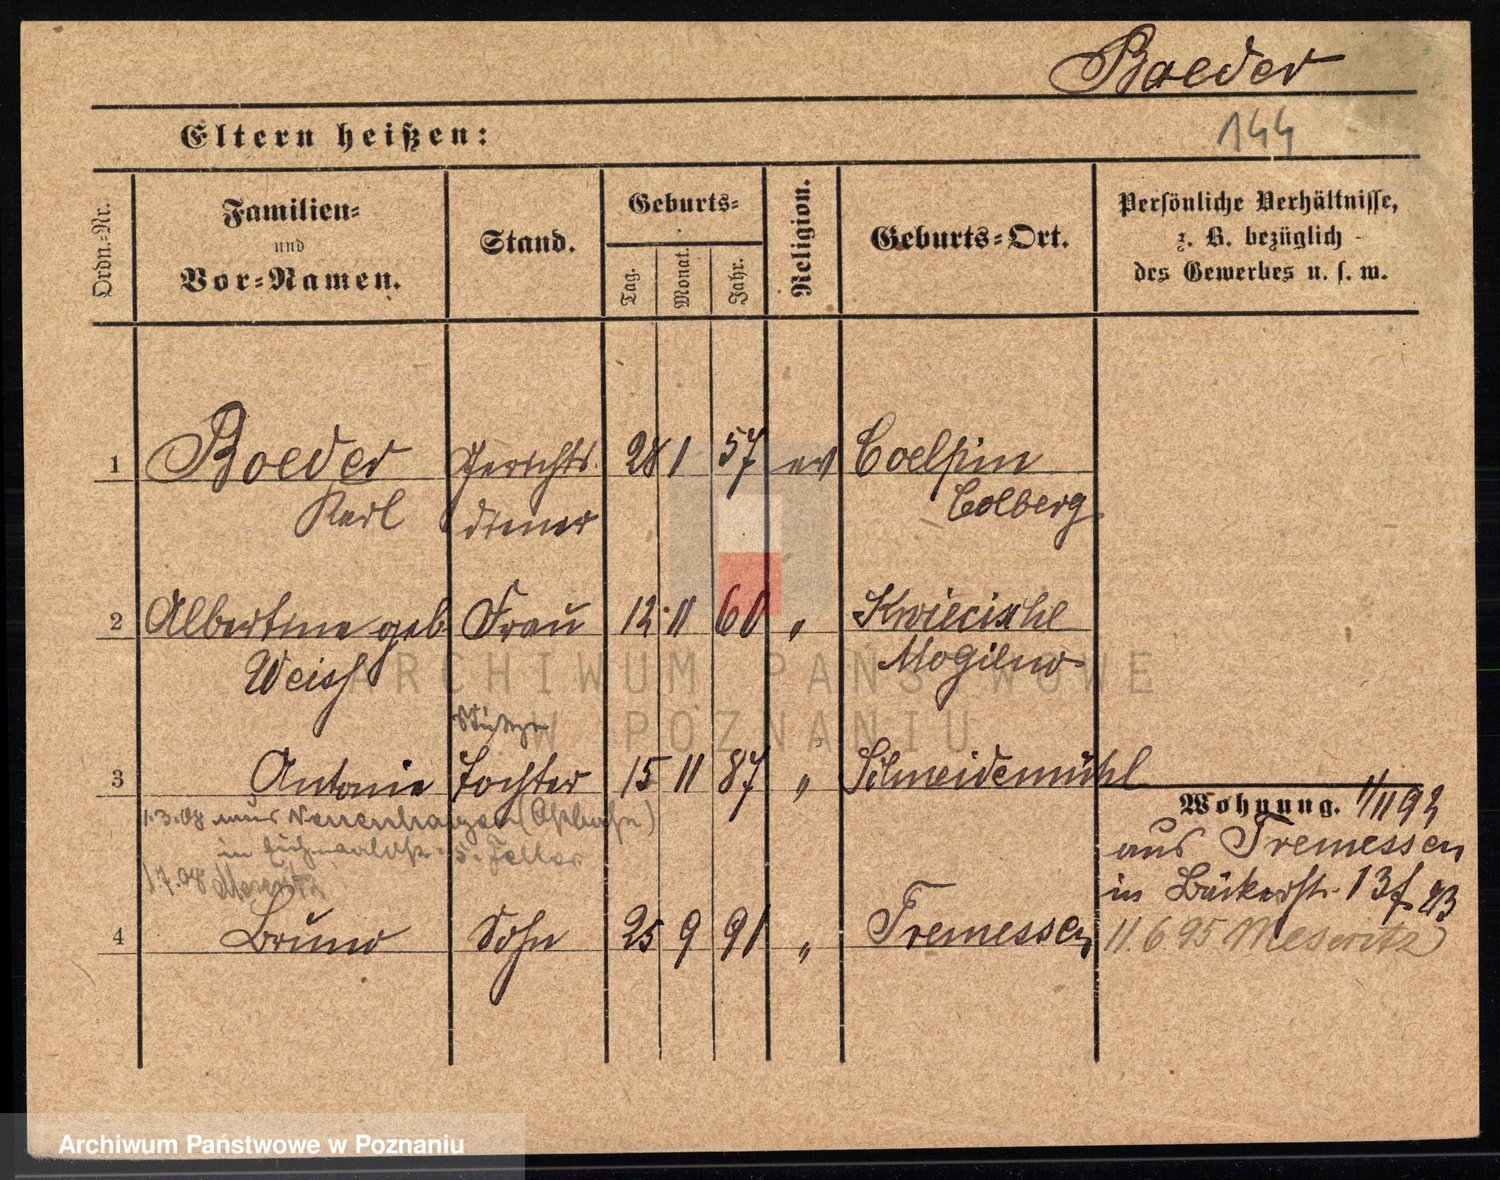 Boeder
144
Eltern heißen:
Ordn.-Nr.
Familien-
und
Vor-Namen.
Stand.
Geburts-
Tag.
Monat.
Jahr.
Religion.
Geburts-Ort.
Persönliche Verhältnisse,
z. B. bezüglich
des Gewerbes u. s. w.
1 Boeder Gerichts 28 1 57 ev Coelpin
Karl diener Colberg
2 Albertine geb Frau 12 11 60 " 
Weiss Mogilno
3 Antonie Tochter 15 11 87 " Schneidemühl
1.3.08 aus
in
1.7.08 Meseritz
4 Bruno Sohn 25 9 91 " Tremessen
Wohnung. 1/11 92
aus Tremessen
in Bäckerstr. 13
11.6.95 Meseritz
ARCHIWUM PAŃSTWOWE
W POZNANIU
Archiwum Państwowe w Poznaniu